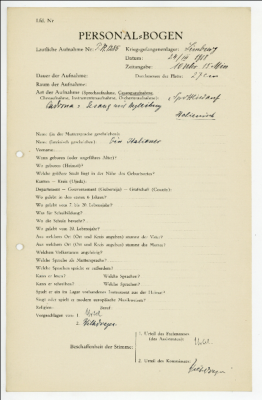 Lfd. Nr.
PERSONAL-BOGEN
Laufende Aufnahme Nr. P.K. Kriegsgefangenenlager:
Datum: 1918
Zeitangabe: 10 Uhr 15 Min
Dauer der Aufnahme: Durchmesser der Platte: 27 cm
Raum der Aufnahme:
Art der Aufnahme (Sprechaufnahme, Gesangsaufnahme, Spottlied auf
Choraufnahme, Instrumentenaufnahme, Orchesteraufnahme): Cadorna; Gesang mit Begleitung
Italienisch
Name (in der Muttersprache geschrieben):
Name (lateinisch geschrieben): Ein Italiener
Vorname:
Wann geboren (oder ungefähres Alter)?
Wo geboren (Heimat)?
Welche größere Stadt liegt in der Nähe des Geburtsortes?
Kanton — Kreis (Ujedz):
Departement — Gouvernement (Gubernija) — Grafschaft (County):
Wo gelebt in den ersten 6 Jahren?
Wo gelebt vom 7. bis 20. Lebensjahr?
Was für Schulbildung?
Wo die Schule besucht?
Wo gelebt vom 20. Lebensjahr?
Aus welchem Ort (Ort und Kreis angeben) stammt der Vater?
Aus welchem Ort (Ort und Kreis angeben) stammt die Mutter?
Welchem Volksstamm angehörig?
Welche Sprache als Muttersprache?
Welche Sprachen spricht er außerdem?
Kann er lesen? Welche Sprachen?
Kann er schreiben? Welche Sprachen?
Spielt er ein im Lager vorhandenes Instrument aus der Heimat?
Singt oder spielt er modern europäische Musikweisen?
Religion: Beruf:
Vorgeschlagen von: 1.
2.
Beschaffenheit der Stimme:
1. Urteil des Fachmannes
(des Assistenten):
2. Urteil des Kommissars: